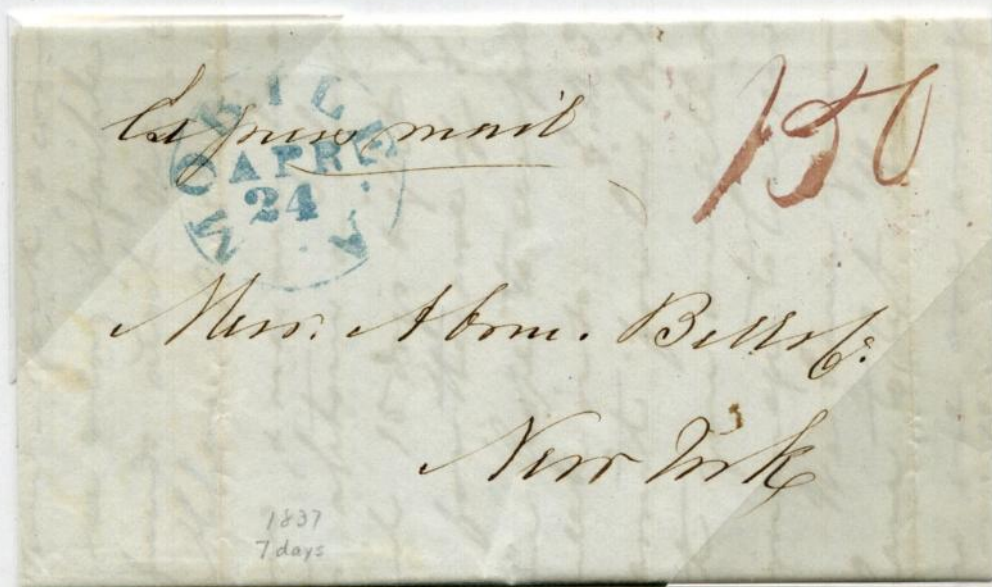 Express mail
150
MOBILE
APR
24
A
Messr. Abrm. Bell & Co.
New York
1837
7 days